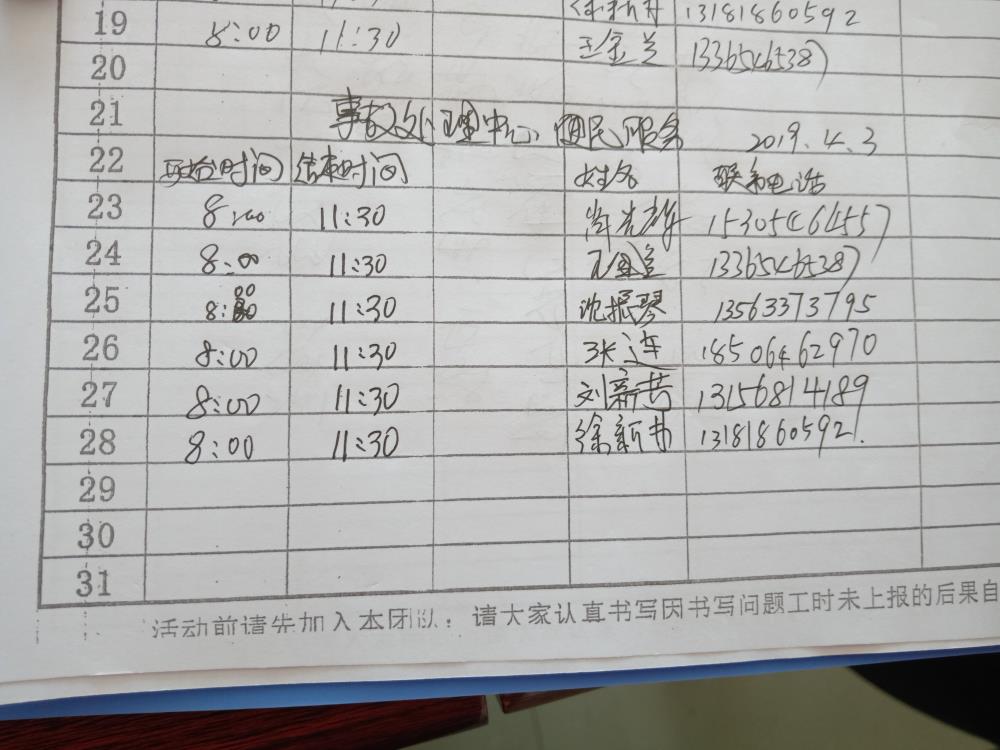 13181860592
19 8:00 11:30 王金兰 13365465387
20
21 事故处理中心 便民服务 2019.4.3
22 开始时间 结束时间 姓名 联系电话
23 8:00 11:30 15305464557
24 8:00 11:30 13365465387
25 8:00 11:30 沈振琴 13563373795
26 8:00 11:30 张连 18506462970
27 8:00 11:30 刘新芳 13156814189
28 8:00 11:30 徐新书 13181860592
29
30
31
活动前请先加入本团队，请大家认真书写因书写问题工时未上报的后果自